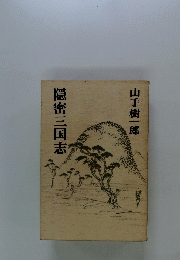 山手樹一郎
隠密三国志